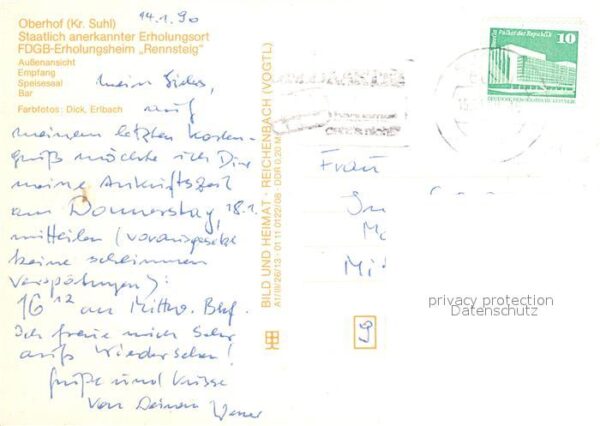 14.1.90
Oberhof (Kr. Suhl)
Staatlich anerkannter Erholungsort
FDGB-Erholungsheim „Rennsteig"
Außenansicht
Empfang
Speisesaal
Bar
Farbfotos: Dick, Erlbach
Mein Liebes,
auf
meinem letzten Karten-
gruß möchte ich Dir
meine Ankunftszeit
am Donnerstag, 18.1.
mitteilen (vorausgesetzt
keine schlimmen
Verspätungen):
16 12 an Mittw. Bhf.
Ich freue mich sehr
aufs Wiedersehen!
Grüße und Küsse
von Deinem
BILD UND HEIMAT · REICHENBACH (VOGTL)
A1/III/26/13 · 01 11 0122/08 · DDR 0,20 M
Berlin, Palast der Republik
10
DEUTSCHE DEMOKRATISCHE REPUBLIK
Frau
9
privacy protection
Datenschutz